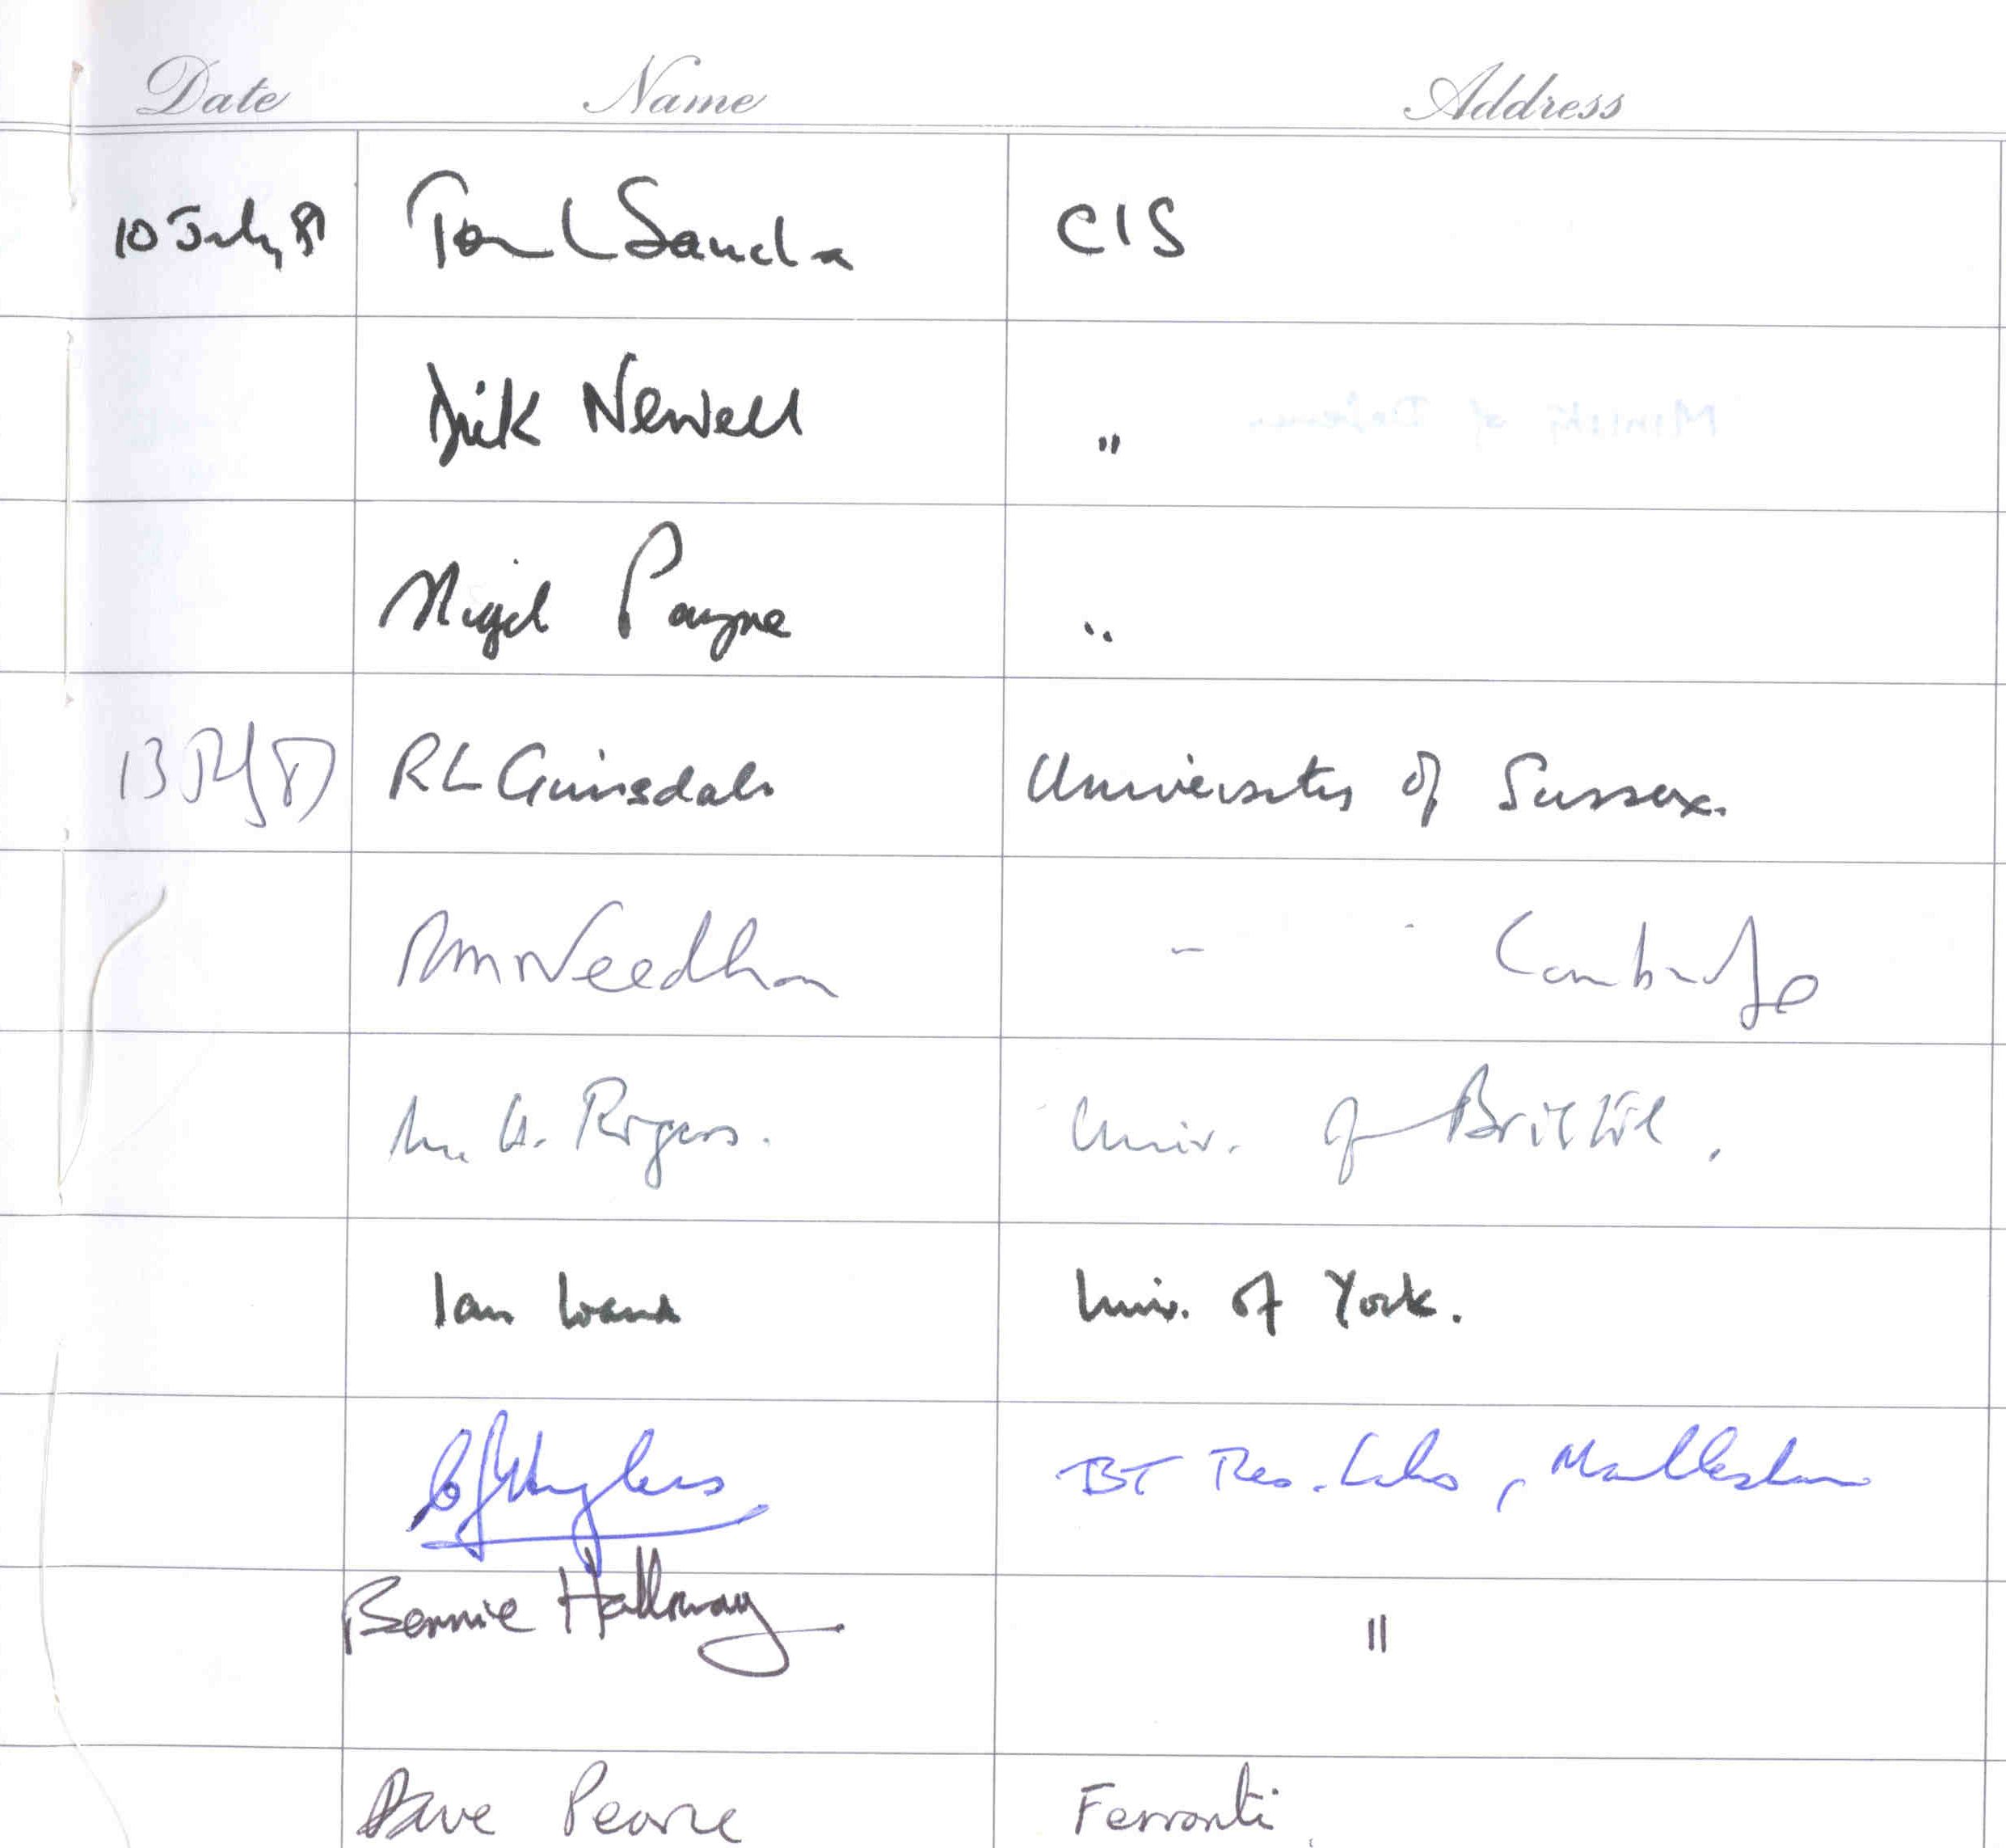 Date Name Address
10 July 81 Tom Sancha CIS
Dick Newell "
Nigel Payne "
13 July 81 RL Grimsdale University of Sussex.
RM Needham - - Cambridge
M. H. Rogers. Univ. of Bristol.
Ian Wand Univ. of York.
BT Res. Labs, Martlesham
Bernie Holloway "
Dave Pearce Ferranti